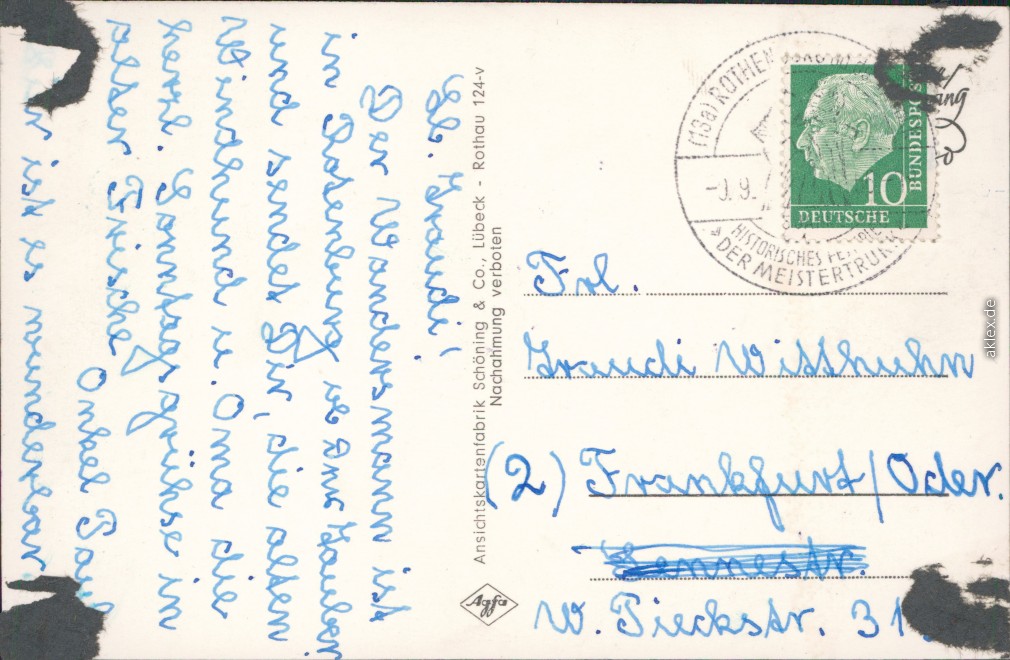 Lb. Traudi!
Der Wandersmann ist
in Rotenburg Tauber
und sendet Dir, die alten
Windhund u. Oma die
herzl. Sonntagsgrühse in
alter Frische Onkel Paul
ist es wunderbar.
Ansichtskartenfabrik Schöning & Co., Lübeck - Rothau 124-v
Nachahmung verboten
Agfa
(13a) ROTHEN
9.
HISTORISCHES
DER MEISTERTRUNK
10
DEUTSCHE
BUNDESPOST
Frl.
Traudi Witthuhn
(2) Frankfurt/Oder.
W. Pieckstr. 31.
aklex.de